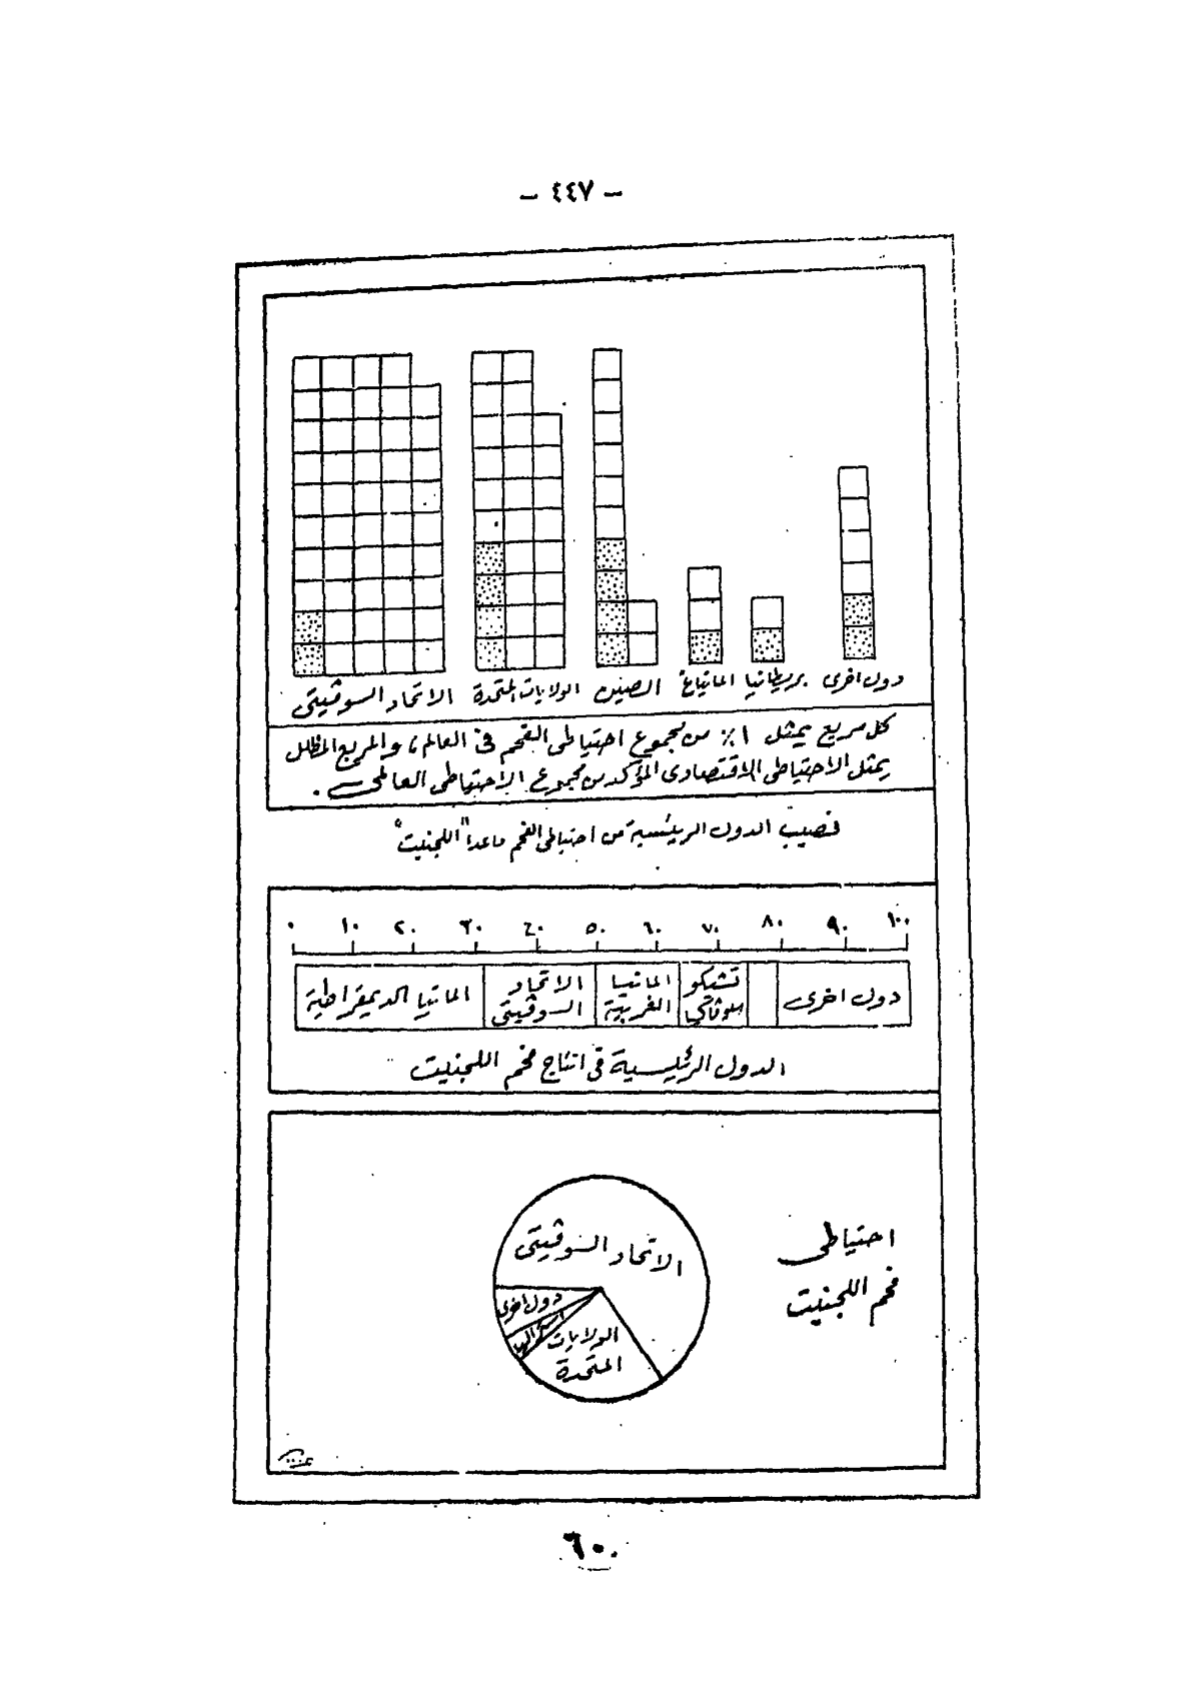 – ٤٤٧ –
الاتحاد السوڤيتى الولايات المتحدة الصين المانياغ بريطانيا دول اخرى
كل مربع يمثل ١٪ من مجموع احتياطى الفحم فى العالم، والمربع المظلل
يمثل الاحتياطى الاقتصادى المؤكد من مجموع الاحتياطى العالمى.
نصيب الدول الرئيسية من احتياطى الفحم ماعدا "اللجنيت"
٠ ١٠ ٢٠ ٣٠ ٤٠ ٥٠ ٦٠ ٧٠ ٨٠ ٩٠ ١٠٠
المانيا الديمقراطية الاتحاد السوڤيتى المانيا الغربية تشيكو سلوڤاكيا دول اخرى
الدول الرئيسية فى انتاج فحم اللجنيت
احتياطى
فحم اللجنيت
الاتحاد السوڤيتى
دول اخرى
استراليا
الولايات
المتحدة
٦٠